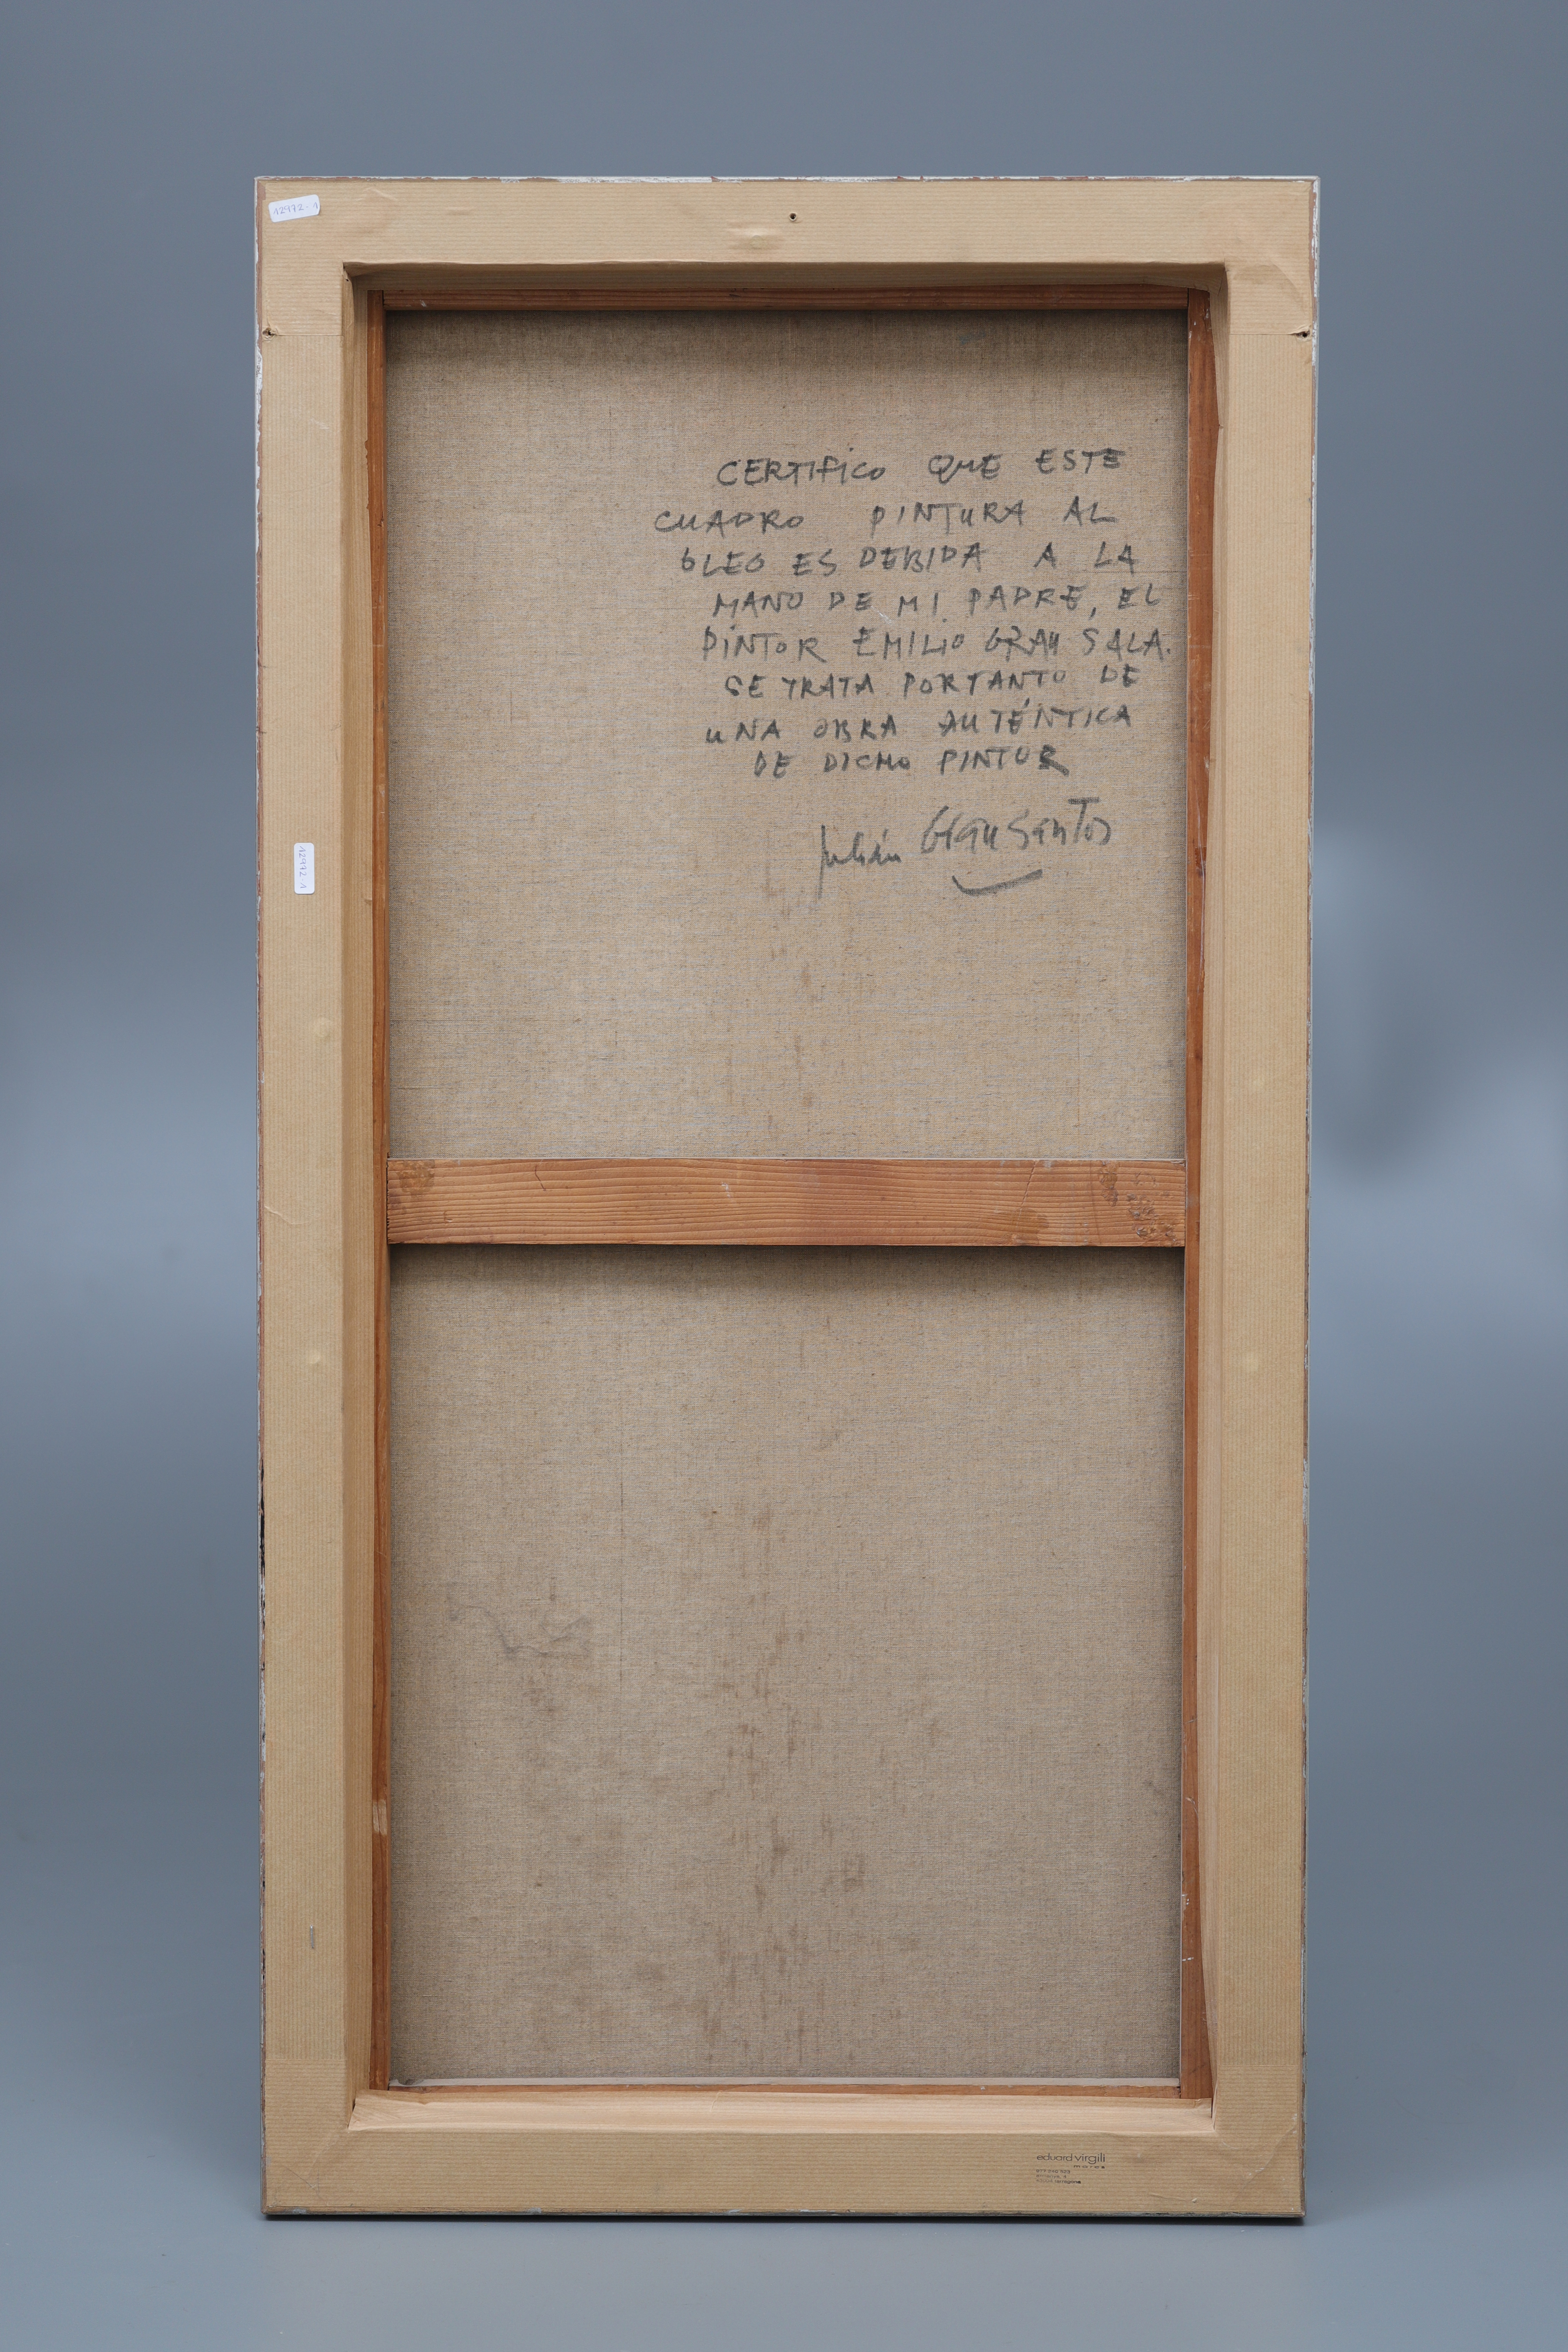 12972-1
CERTIFICO QUE ESTE
CUADRO PINTURA AL
ÓLEO ES DEBIDA A LA
MANO DE MI PADRE, EL
PINTOR EMILIO GRAU SALA.
SE TRATA PORTANTO DE
UNA OBRA AUTÉNTICA
DE DICHO PINTOR
Julián Grau Santos
12972-1
eduard virgili